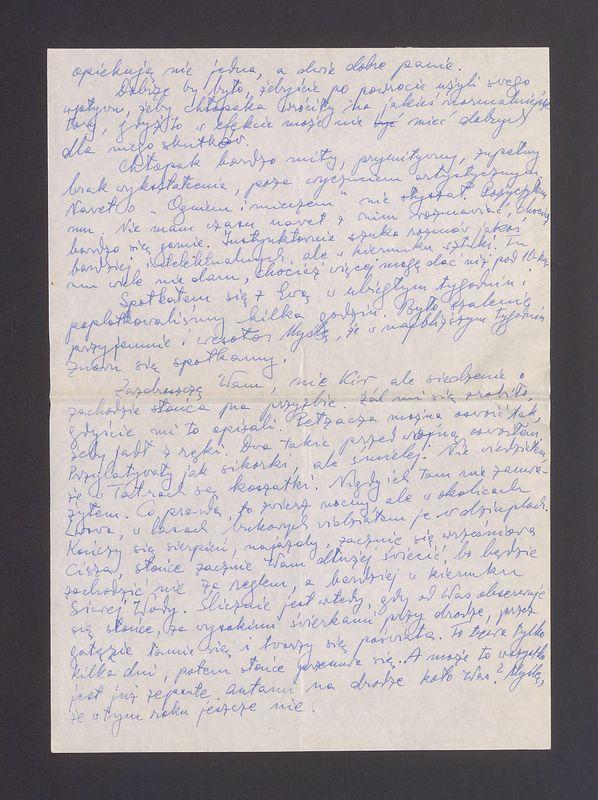 opiekują nie jedna, a dwie dobre panie.
Dobrze by było, żebyście po powrocie użyli swego
wpływu, żeby chłopaka wrócić na jakieś normalniejsze
tory, gdyż to w efekcie może nie być mieć dobrych
dla niego skutków.
Chłopak bardzo miły, prymitywny, zupełny
brak wykształcenia, poza wyczuciem artystycznym.
Nawet o "Ogniem i mieczem" nie słyszał. Pożyczyłem
mu. Nie mam czasu nawet z nim rozmawiać, chociaż
bardzo się garnie. Instynktownie szuka rozmów jakoś
bardziej intelektualnych, ale w kierunku sztuki. Tu
mu wiele nie dam, chociaż więcej mogą dać niż pod 10-ką.
Spotkałem się z Ewą w ubiegłym tygodniu i
poplotkowaliśmy kilka godzin. Było szalenie
przyjemnie i wesoło. Myślę, że w najbliższym tygodniu
znowu się spotkamy.
Zazdroszczę Wam, nie Kir, ale siedzenie o
zachodzie słońca na przyzbie. Żal mi się zrobiło,
gdyście mi to opisali. Pełzacza można oswoić tak,
żeby jadł z ręki. Dwa takie przed wojną oswoiłem.
Przylatywały jak sikorki, ale śmielej. Nie wiedziałem,
że w Tatrach są koszatki. Nigdy ich tam nie zauwa-
żyłem. Co prawda, to zwierz nocny, ale w okolicach
Lwowa, w lasach bukowych widziałem je w dziuplach.
Kończy się sierpień, najazdy, zacznie się wrześniowa
cisza, słońce zacznie Wam dłużej świecić, bo będzie
zachodzić nie za reglem, a bardziej w kierunku
Siwej Wody. Ślicznie jest wtedy, gdy od Was obserwuje
się słońce, za wysokimi świerkami przy drodze, przez
gałęzie łamie się i tworzy się poświata. To trwa tylko
kilka dni, potem słońce przesuwa się. A może to wszystko
jest już zepsute autami na drodze koło Was? Myślę,
że w tym roku jeszcze nie.